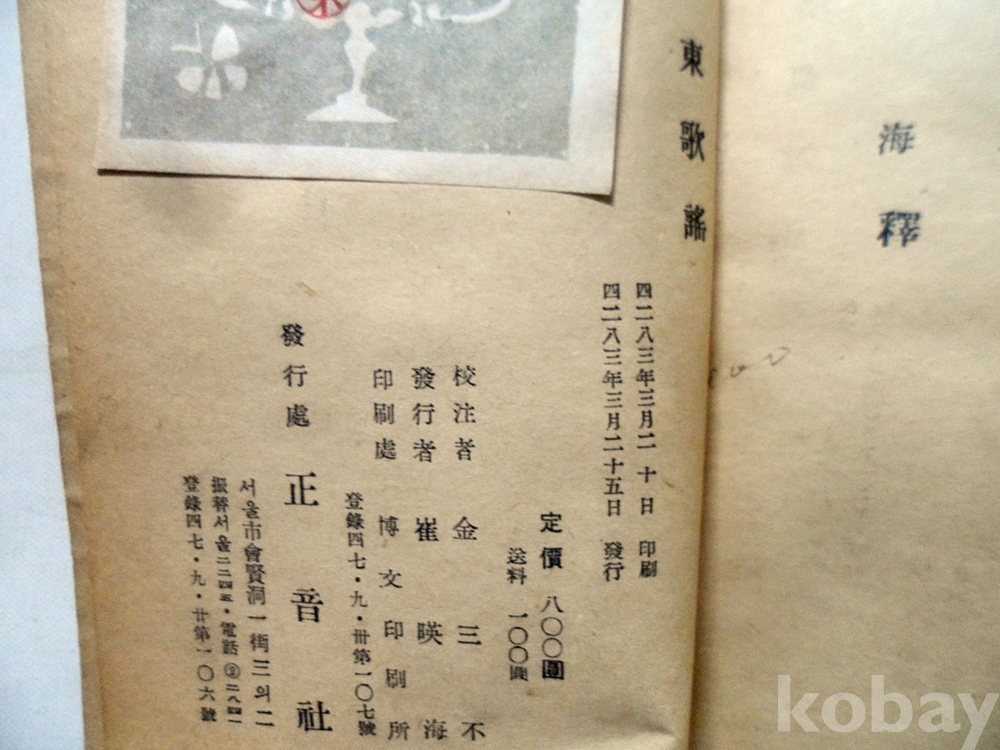 海釋
東歌謠
四二八三年三月二十日 印刷
四二八三年三月二十五日 發行
定價 八〇〇圓
送料 一〇〇圓
校注者 金三不
發行者 崔暎海
印刷處 博文印刷所
登錄四七・九・卅第一〇七號
發行處 正音社
서울市會賢洞一街三의二
振替서울二二四五・電話②二八四一
登錄四七・九・廿第一〇六號
kobay